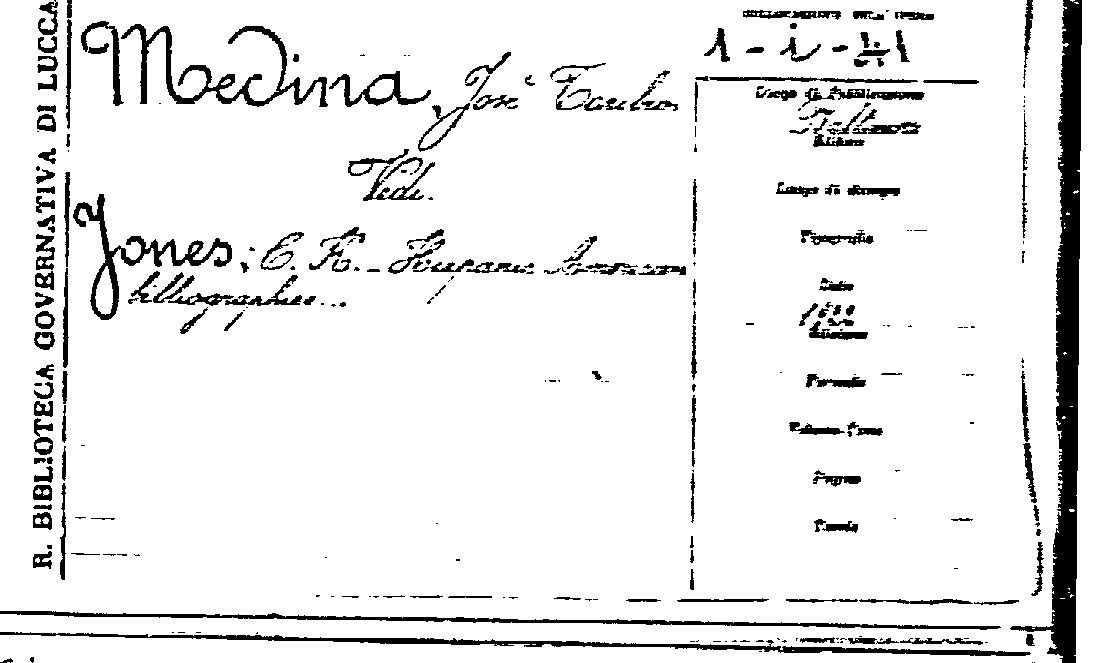 R. BIBLIOTECA GOVERNATIVA DI LUCCA
Medina, José Toribio
Vedi.
Jones, C. K. - Hispano American
bibliographies...
COLLOCAZIONE DELL'OPERA
1 - i -
Luogo di Pubblicazione
Baltimore
Editore
Luogo di stampa
Tipografia
Data
1922
Edizione
Formato
Pagine
Tavole